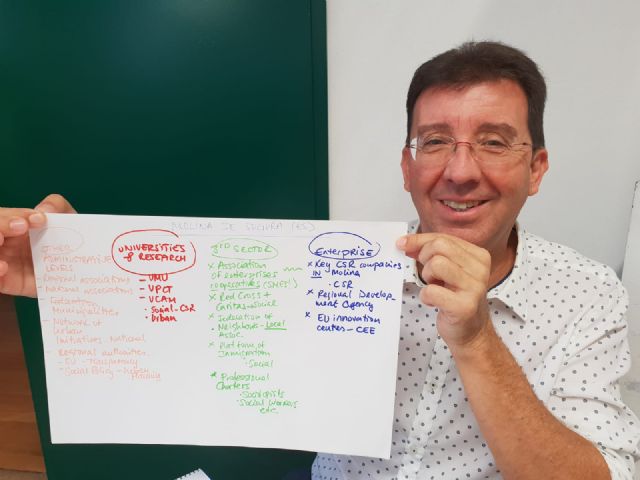 MOLINA DE SEGURA (ES)
OTHER
ADMINISTRATIVE
LEVELS
- Regional associations
- National associations
- Federation
Municipalities
- Network of
Urban
Initiatives National
- Regional authorities
- EU - transparency
- Social Policy -
UNIVERSITIES
& RESEARCH
- UMU
- UPCT
- UCAM
• Social-CSR
• Urban
3RD SECTOR
x Association
of enterprises
(SMES!)
x Red Cross +
Caritas
x Federation of
Neighbours - Local
Assoc.
x Platform of
Immigration
• Social
x Professional
Charters
• Sociologists
• Social Workers
etc
ENTERPRISE
x Key CSR companies
IN Molina
• CSR
x Regional Develop-
ment Agency
x EU innovation
centres - CEE